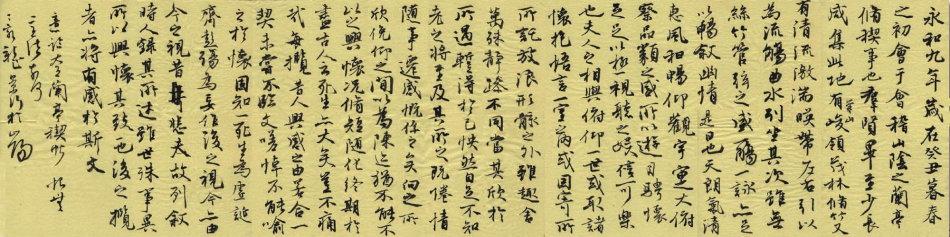 永和九年歲在癸丑暮春
之初會于會稽山陰之蘭亭
脩稧事也群賢畢至少長
咸集此地有崇山峻領茂林脩竹又
有清流激湍暎帶左右引以
為流觴曲水列坐其次雖無
絲竹管弦之盛一觴一詠亦足
以暢敘幽情是日也天朗氣清
惠風和暢仰觀宇宙之大俯
察品類之盛所以遊目騁懷
足以極視聽之娛信可樂
也夫人之相與俯仰一世或取諸
懷抱悟言一室之內或因寄所
所託放浪形骸之外雖趣舍
萬殊靜躁不同當其欣於
所遇暫得於己怏然自足不知
老之將至及其所之既倦情
隨事遷感慨係之矣向之所
欣俛仰之間以為陳迹猶不能不
以之興懷況脩短隨化終期於
盡古人云死生亦大矣豈不痛
哉每攬昔人興感之由若合一
契未嘗不臨文嗟悼不能喻
之於懷固知一死生為虛誕
齊彭殤為妄作後之視今亦由
今之視昔悲夫故列敘
時人錄其所述雖世殊事異
所以興懷其致一也後之攬
者亦將有感於斯文
蘭亭稧帖